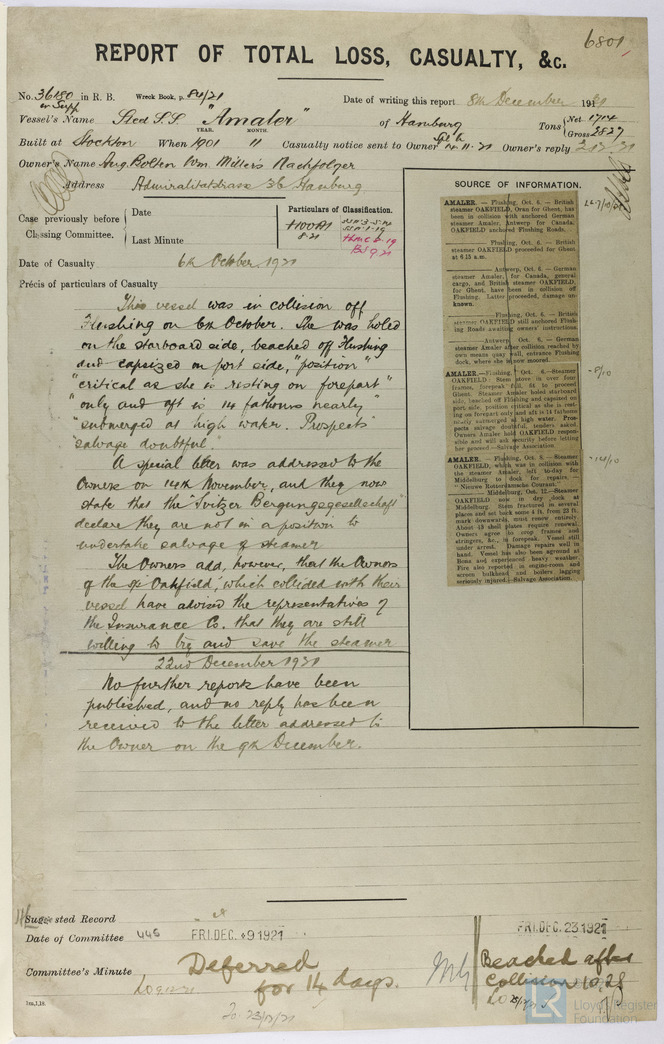 6801
REPORT OF TOTAL LOSS, CASUALTY, &c.
No. 36180 in R. B. Wreck Book, p. 84/21 Date of writing this report 8th December 19
in Supp
Vessel's Name Steel S.S "Amaler" of Hamburg Tons Net 1714 Gross 2827
YEAR. MONTH.
Built at Stockton When 1901 11 Casualty notice sent to Owner 14.11.21 Owner's reply
Owner's Name Aug. Bolten Wm Miller's Nachfolger
Address Admiralitatstrasse 36 Hamburg
Case previously before Classing Committee.
Date
Last Minute
Particulars of Classification.
+100A1
8.21
Date of Casualty 6th October, 1921
Précis of particulars of Casualty
This vessel was in collision off
Flushing on 6th October. She was holed
on the starboard side, beached off Flushing
and capsized on port side, "position"
"critical as she is resting on forepart"
"only and aft in 14 fathoms nearly"
"submerged at high water. Prospects"
"salvage doubtful."
A special letter was addressed to the
Owners on 14th November, and they now
state that the "Svitzer Bergungsgesellschaft"
declare they are not in a position to
undertake salvage of steamer
The Owners add, however, that the Owners
of the s/s "Oakfield", which collided with their
vessel have advised the representatives of
the Insurance Co. that they are still
willing to try and save the steamer
22nd December 1921
No further reports have been
published, and no reply has been
received to the letter addressed to
the Owner on the 9th December.
SOURCE OF INFORMATION.
AMALER. — Flushing, Oct. 6. — British
steamer OAKFIELD, Oran for Ghent, has
been in collision with anchored German
steamer Amaler, Antwerp for Canada.
OAKFIELD anchored Flushing Roads.
Flushing, Oct. 6. — British
steamer OAKFIELD proceeded for Ghent,
at 6.15 a.m.
Antwerp, Oct. 6. — German
steamer Amaler, for Canada, general
cargo, and British steamer OAKFIELD,
for Ghent, have been in collision off
Flushing. Latter proceeded, damage unknown.
Flushing, Oct. 6. — British
steamer OAKFIELD still anchored Flushing
Roads awaiting owners' instructions.
Antwerp, Oct. 6. — German
steamer Amaler after collision reached by
own means quay wall, entrance Flushing
dock, where she is now moored.
AMALER. — Flushing, Oct. 6. — Steamer
OAKFIELD: Stem stove in over four
frames, forepeak full, fit to proceed
Ghent. Steamer Amaler holed starboard
side, beached off Flushing and capsized on
port side, position critical as she is resting
on forepart only and aft is 14 fathoms
nearly submerged at high water. Prospects
salvage doubtful, tenders asked.
Owners Amaler hold OAKFIELD responsible
and will ask security before letting
her proceed.—Salvage Association.
8/10
AMALER. — Flushing, Oct. 6. — Steamer
OAKFIELD, which was in collision with
the steamer Amaler, left to-day for
Middelburg to dock for repairs. —
"Nieuwe Rotterdamsche Courant."
Middelburg, Oct. 12.—Steamer
OAKFIELD now in dry dock at
Middelburg. Stem fractured in several
places and set back some 4 ft. from 23 ft.
mark downwards, must renew entirely.
About 43 shell plates require renewal.
Owners agree to crop frames and
stringers, &c., in forepeak. Vessel still
under arrest. Damage repairs well in
hand. Vessel has also been aground at
Bona and experienced heavy weather.
Fire also reported in engine-room and
screen bulkhead and boilers lagging
seriously injured.—Salvage Association.
Suggested Record
Date of Committee 446 FRI. DEC. 9 1921 FRI. DEC. 23 1921
Committee's Minute Deferred for 14 days.
Beached after
Collision 10.21
1m,1,18.
LR Lloyd's Register
Foundation